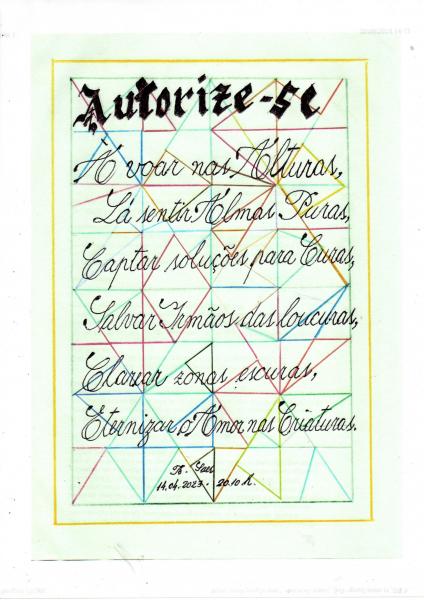 Autorize-se
À voar nas Alturas,
Lá sentir Almas Puras,
Captar soluções para Curas,
Salvar Irmãos das loucuras,
Clarear zonas escuras,
Eternizar o Amor nas Criaturas.
14.04.2023. 20.10 h.